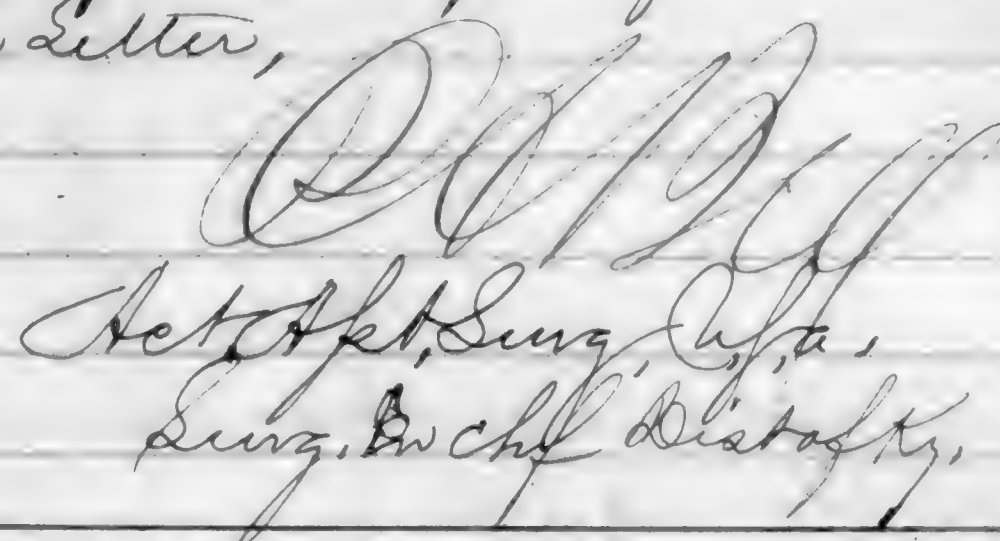 Letter,
R. A. Bell
Act. Asst. Surg. U.S.A.
Surg. In Chf Dist of Ky.